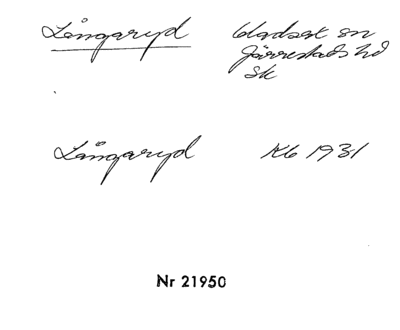 Långaryd Gladsax sn
Järrestads hd
Sk
Långaryd Kb 1931
Nr 21950